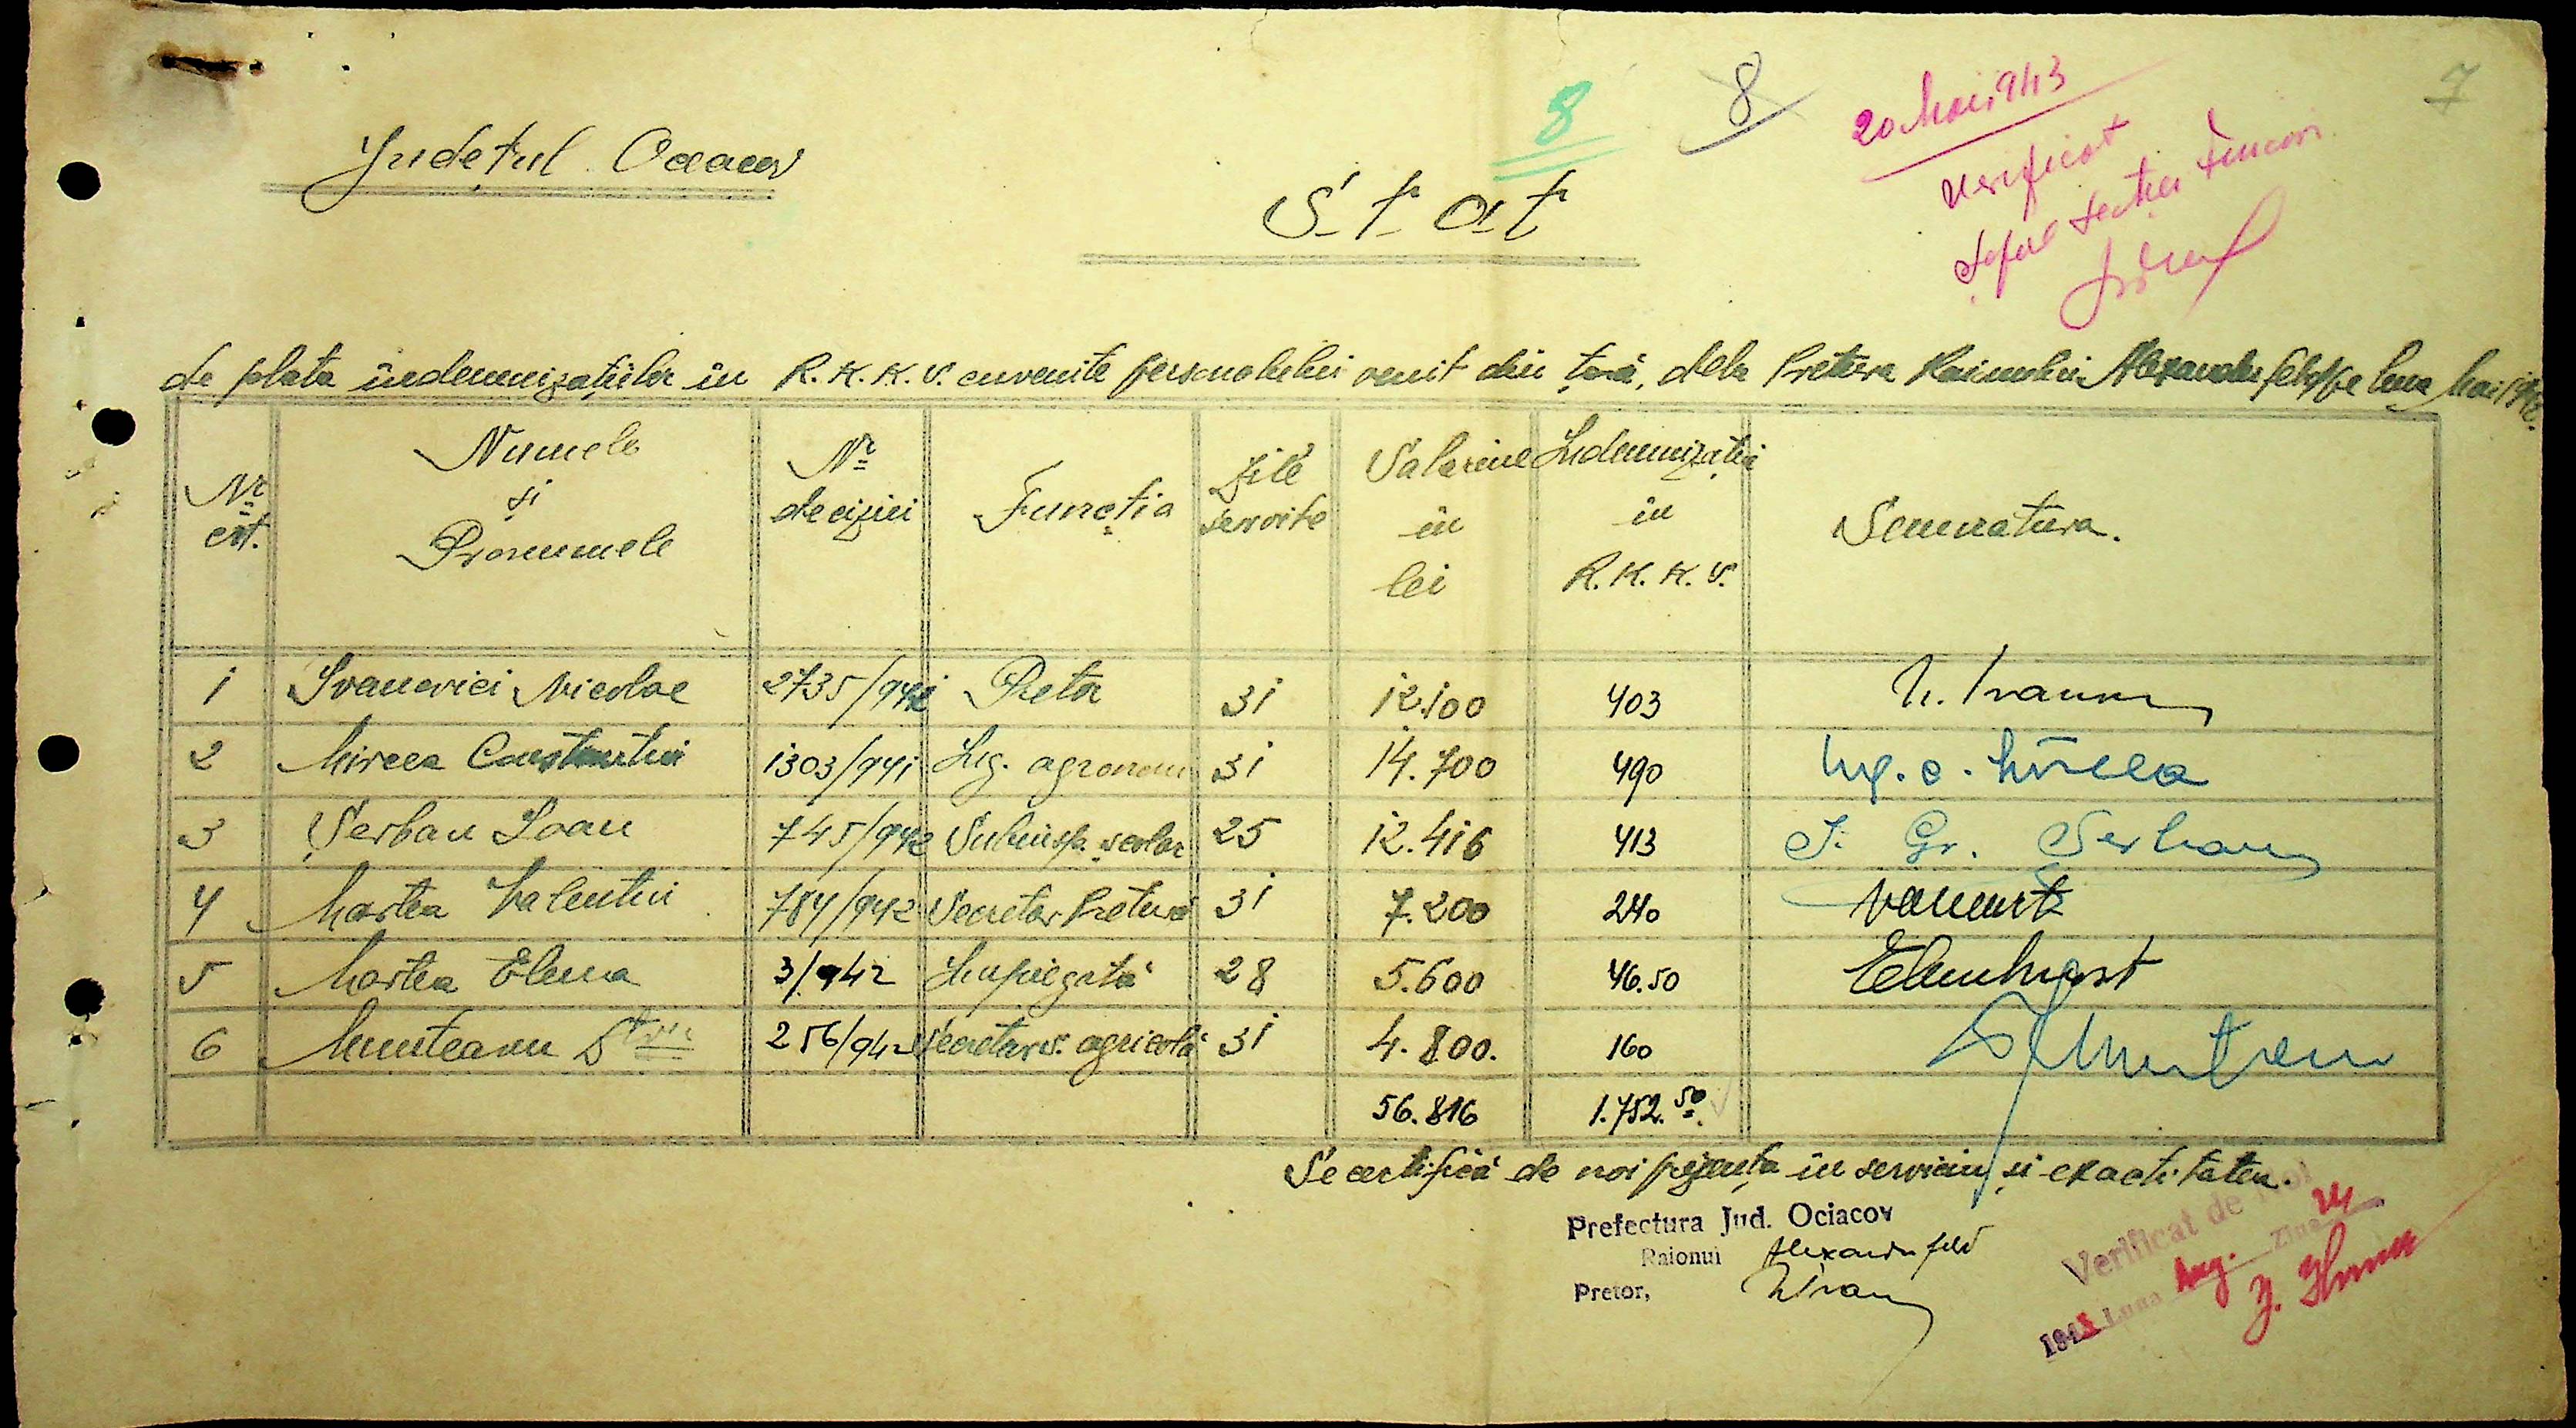 7
8
8
20 Mai 943
Verificat
Șeful Secției Financ
Județul Oceacov
Stat
de plata indemnizațiilor în R.K.K.V. cuvenite personalului venit din țară, dela Pretura Raionului Alexandrufeld pe luna Mai 1942.
Nr. crt. Numele și Pronumele Nr. deciziei Funcția Zile servite Salariul în lei Indemnizația în R.K.K.V. Semnatura.
1 Ivanovici Nicolae 2735/941 Pretor 31 12.100 403 N. Ivanov
2 Mircea Constantin 1303/941 Ing. agronom 31 14.700 490 Ing. C. Mircea
3 Șerban Ioan 745/942 Subinsp. școlar 25 12.416 413 I. Gr. Șerban
4 Martea Valentin 784/942 Secretar Pretură 31 7.200 240
5 Martea Elena 3/942 Impiegată 28 5.600 46.50
6 Munteanu Dtru 256/942 Secretar s. agricolă 31 4.800. 160
56.816 1.752.50
Se certifică de noi prezența în serviciu și exactitatea.
Prefectura Jud. Ociacov
Raionul Alexandrufeld
Pretor,
Verificat de noi
194 Luna Aug. Ziua